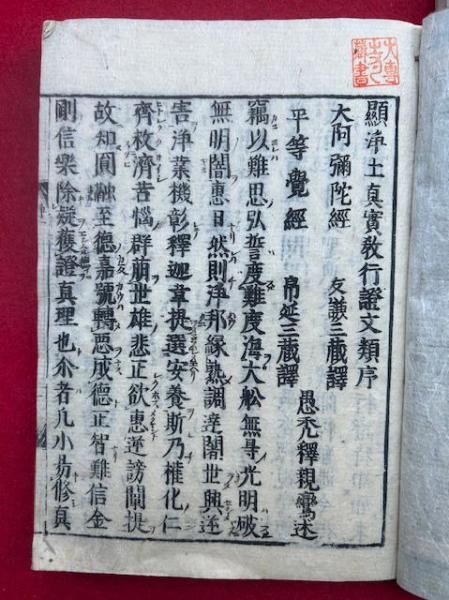 顯淨土真實教行證文類序
大阿彌陀經 友謙三藏譯
平等覺經 帛延三藏譯
愚禿釋親鸞述
竊以難思弘誓度難度海大舩無导光明破
無明闇惠日然則淨邦緣熟調達闍世興逆
害淨業機彰釋迦韋提選安養斯乃權化仁
齊救濟苦惱群萠世雄悲正欲惠逆謗闡提
故知圓融至德嘉號轉惡成德正智難信金
剛信樂除疑獲證真理也尒者凡小易修真